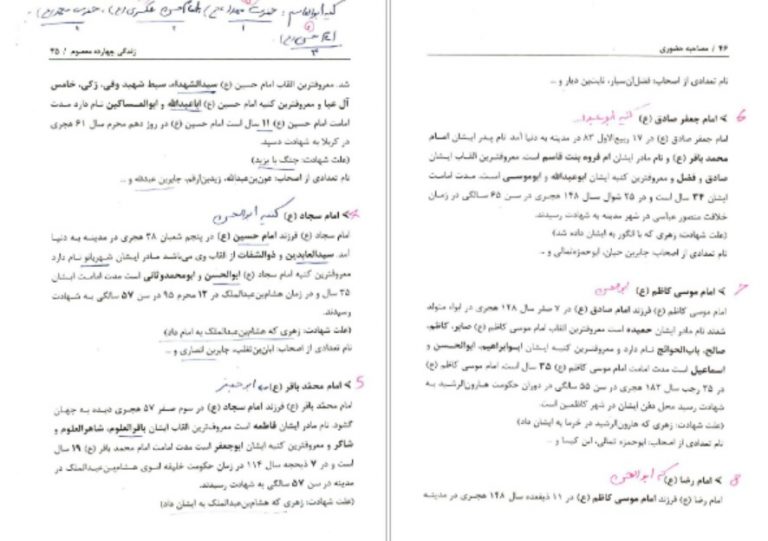 کنیه ابوالقاسم: حضرت محمد (ص)، امام حسن عسکری (ع)، حضرت مهدی (عج)
۴۶ / مصاحبه حضوری
نام تعدادی از اصحاب: فضل‌ان‌سیار، ثابت‌بن دیار و ...
6 > امام جعفر صادق (ع) کنیه ابوعبدا...
امام جعفر صادق (ع) در ۱۷ ربیع‌الاول ۸۳ در مدینه به دنیا آمد. نام پدر ایشان امام
محمد باقر (ع) و نام مادر ایشان ام فروه بنت قاسم است. معروفترین القاب ایشان
صادق و فضل و معروفترین کنیه ایشان ابوعبدالله و ابوموسی است. مدت امامت
ایشان ۳۴ سال است و در ۲۵ شوال سال ۱۴۸ هجری در سن ۶۵ سالگی در زمان
خلافت منصور عباسی در شهر مدینه به شهادت رسیدند.
(علت شهادت: زهری که با انگور به ایشان داده شد)
نام تعدادی از اصحاب: جابربن حیان، ابوحمزه‌ثمالی و ...
7 > امام موسی کاظم (ع) ابوالحسن
امام موسی کاظم (ع) فرزند امام صادق (ع) در ۷ صفر سال ۱۲۸ هجری در ابواء متولد
شدند نام مادر ایشان حمیده است معروفترین القاب امام موسی کاظم (ع) صابر، کاظم،
صالح، باب‌الحوائج نام دارد و معروفترین کنیه ایشان ابوابراهیم، ابوالحسن و
اسماعیل است مدت امامت امام موسی کاظم (ع) ۳۵ سال است. امام موسی کاظم (ع)
در ۲۵ رجب سال ۱۸۳ هجری در سن ۵۵ سالگی در دوران حکومت هارون‌الرشید به
شهادت رسید محل دفن ایشان در شهر کاظمین است.
(علت شهادت: زهری که هارون‌الرشید در خرما به ایشان داد)
نام تعدادی از اصحاب: ابوحمزه ثمالی، ابن کیسا و ...
8 > امام رضا (ع) ابوالحسن
امام رضا (ع) فرزند امام موسی کاظم (ع) در ۱۱ ذیقعده سال ۱۴۸ هجری در مدینه
زندگی چهارده معصوم / ۴۵
شد. معروفترین القاب امام حسین (ع) سیدالشهداء، سبط شهید وفی، زکی، خامس
آل عبا و معروفترین کنیه امام حسین (ع) اباعبدالله و ابوالمساکین نام دارد مدت
امامت امام حسین (ع) ۱۱ سال است امام حسین (ع) در روز دهم محرم سال ۶۱ هجری
در کربلا به شهادت رسید.
(علت شهادت: جنگ با یزید)
نام تعدادی از اصحاب: عون‌بن‌عبدالله، زیدبن‌ارقم، جابربن عبدالله و ...
> امام سجاد (ع) کنیه ابوالحسن
امام سجاد (ع) فرزند امام حسین (ع) در پنجم شعبان ۳۸ هجری در مدینه به دنیا
آمد. سیدالعابدین و ذوالثفنات از القاب وی می‌باشد مادر ایشان شهربانو نام دارد
معروفترین کنیه امام سجاد (ع) ابوالحسن و ابومحمدوثانی است مدت امامت ایشان
۳۵ سال و در زمان هشام‌بن‌عبدالملک در ۱۲ محرم ۹۵ در سن ۵۷ سالگی به شهادت
رسیدند.
(علت شهادت: زهری که هشام‌بن‌عبدالملک به امام داد)
نام تعدادی از اصحاب: ابان‌بن‌تغلب، جابربن انصاری و ...
5 > امام محمّد باقر (ع) ابوجعفر
امام محمّد باقر (ع) فرزند امام سجاد (ع) در سوم صفر ۵۷ هجری دیده به جهان
گشود. نام مادر ایشان فاطمه است معروفترین القاب ایشان باقرالعلوم، شاهرالعلوم و
شاکر و معروفترین کنیه ایشان ابوجعفر است مدت امامت امام محمد باقر (ع) ۱۹ سال
است و در ۷ ذیحجه سال ۱۱۴ در زمان حکومت خلیفه اموی هشام‌بن‌عبدالملک در
مدینه در سن ۵۷ سالگی به شهادت رسیدند.
(علت شهادت: زهری که هشام‌بن‌عبدالملک به ایشان داد)